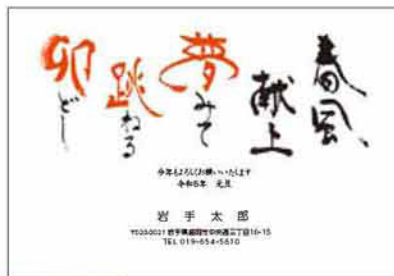 春風、
献上
夢みて
跳ねる
卯どし
今年もよろしくお願いいたします
令和5年 元旦
岩手太郎
〒020-0021 岩手県盛岡市中央通三丁目16-15
TEL 019-654-5610